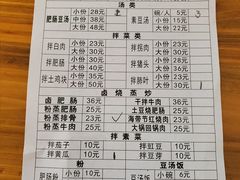 汤类
肥肠豆汤 小份 28元 素豆汤 碗/人 5元 3
中份 38元 小份 15元
大份 48元 大份 22元
拌菜类
拌白肉 小份 23元 拌拐肉 小份 23元
大份 30元 大份 30元
拌肥肠 小份 25元 拌猪头 小份 23元
大份 35元 大份 30元
拌土鸡块 小份 35元 拌肠叶 小份 23元
大份 50元 大份 30元
卤烧蒸炒
卤肥肠 36元 干拌牛肉 25元
粉蒸肥肠 25元 土豆烧肥肠 25元
粉蒸排骨 23元 海带节红烧肉 23元
粉蒸牛肉 25元 大锅回锅肉 25元
拌素菜
拌茄子 10元 拌豇豆 10元
拌黄瓜 10元 拌豆芽 10元
粉 豆汤饭
小份 10元 豆汤饭 小份